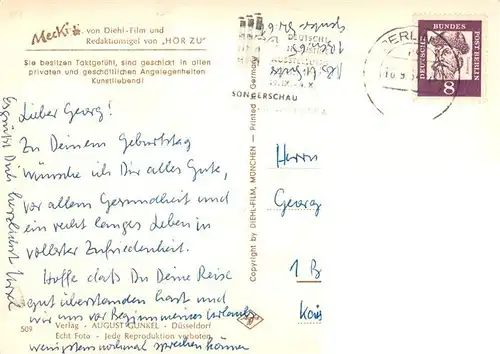 Mecki von Diehl-Film und
Redaktionsigel von „HÖR ZU"
Sie besitzen Taktgefühl, sind geschickt in allen
privaten und geschäftlichen Angelegenheiten
Kunstliebend!
Lieber Georg!
Zu Deinem Geburtstag
wünsche ich Dir alles Gute,
vor allem Gesundheit und
ein recht langes Leben in
vollster Zufriedenheit.
Hoffe daß Du Deine Reise
gut überstanden hast und
wir uns vor Beginn meines Urlaubes
wenigstens nochmal sprechen können
herzlichst
509
Verlag - AUGUST GUNKEL - Düsseldorf
Echt Foto - Jede Reproduktion verboten
Copyright by DIEHL-FILM, MÜNCHEN - Printed in Germany
DEUTSCHE
SONDERSCHAU
BERLIN
DEUTSCHE BUNDESPOST BERLIN
8
Herrn
Georg
1 B